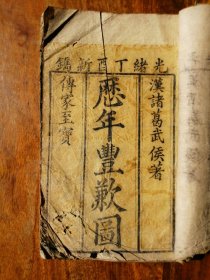 光緒丁酉新鐫
漢諸葛武侯著
歷年豐歉圖
傳家至寶